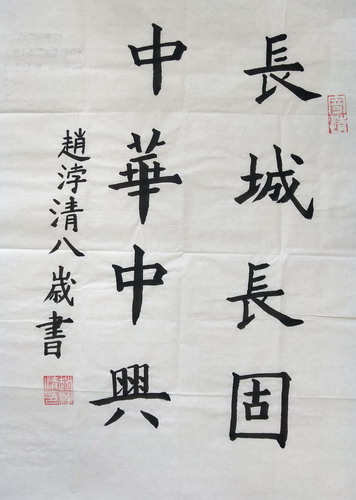 長城長固
中華中興
趙浡清八歲書